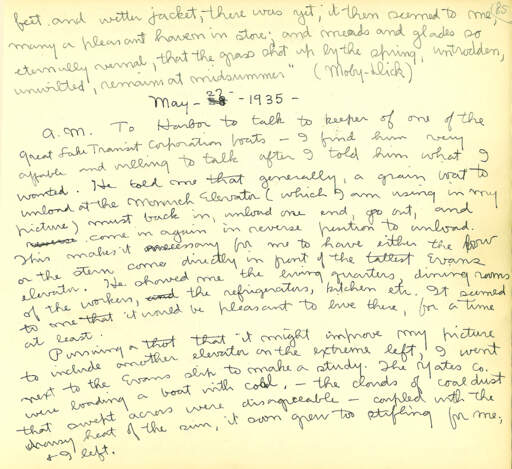 85
feet and wetter jacket, there was yet, it then seemed to me,
many a pleasant haven in store; and meads and glades so
eternally vernal, that the grass shot up by the spring, untrodden,
unwilted, remains at midsummer" (Moby-Dick)
May - 29 - 1935 -
A.M. To Harbor to talk to keeper of one of the
Great Lake Transit Corporation boats - I find him very
affable and willing to talk after I told him what I
wanted. He told me that generally, a grain boat to
unload at the Monarch Elevator (which I am using in my
picture) must back in, unload one end, go out, and
reverse come in again in reverse position to unload.
This makes it necessary for me to have either the bow
or the stern come directly in front of the tallest Evans
elevator. He showed me the living quarters, dining rooms
of the workers, and the refrigerators, kitchen etc. It seemed
to me that it would be pleasant to live there, for a time
at least.
Pursuing a thot that it might improve my picture
to include another elevator on the extreme left, I went
next to the Evans slip to make a study. The Yates Co.
were loading a boat with coal, - the clouds of coal dust
that swept across were disagreeable - coupled with the
drowsy heat of the sun, it soon grew too stifling for me,
& I left.